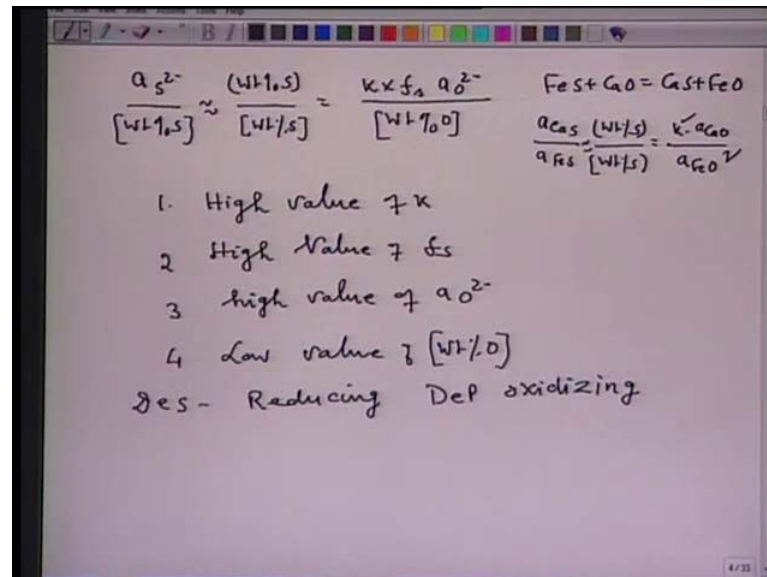 a_S²⁻ / [wt%S] ≈ (wt%S) / [wt%S] = K×f_s a_O²⁻ / [wt%O]
FeS + CaO = CaS + FeO
a_CaS / a_FeS ≈ (wt%S) / [wt%S] = K·a_CaO / a_FeO
1. High value of K
2 High Value of fs
3 high value of a_O²⁻
4 Low value of [wt%O]
Des - Reducing DeP oxidizing
4/33